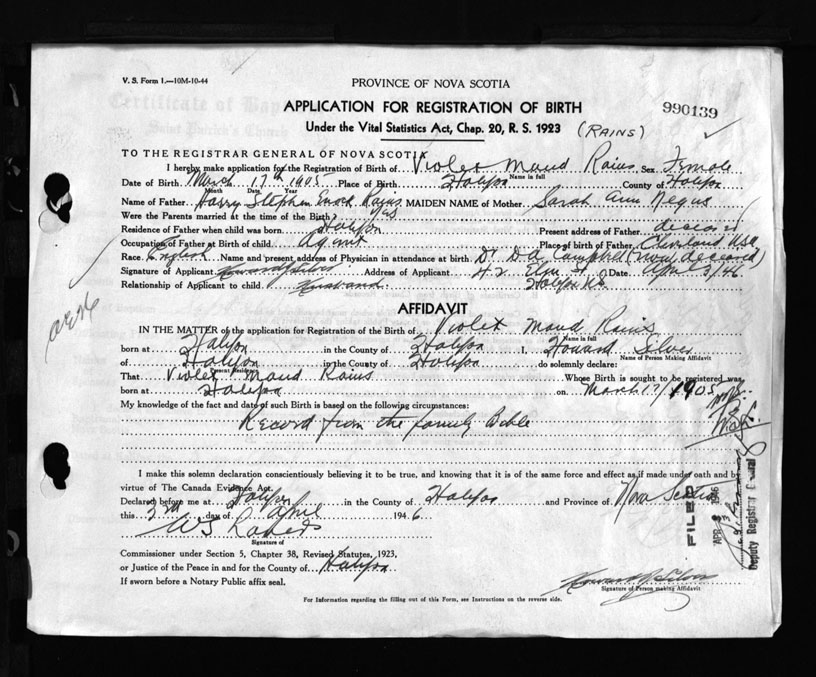 V. S. Form 1.—10M-10-44
PROVINCE OF NOVA SCOTIA
APPLICATION FOR REGISTRATION OF BIRTH
990139
Under the Vital Statistics Act, Chap. 20, R. S. 1923 (RAINS)
TO THE REGISTRAR GENERAL OF NOVA SCOTIA
I hereby make application for the Registration of Birth of Violet Maud Rains Sex Female
Name in full
Date of Birth March 17th 1905 Place of Birth Halifax County of Halifax
Month Date Year
Name of Father Harry Stephen Enock Rains MAIDEN NAME of Mother Sarah Ann Negus
Were the Parents married at the time of the Birth? yes
Residence of Father when child was born Halifax Present address of Father deceased
Occupation of Father at Birth of child agent Place of birth of Father Cleveland USA
Race English Name and present address of Physician in attendance at birth Dr D A Campbell (now deceased)
Signature of Applicant Howard Silver Address of Applicant 42 Elm St Date April 3/46
Relationship of Applicant to child Husband Halifax N.S.
AFFIDAVIT
IN THE MATTER of the application for Registration of the Birth of Violet Maud Rains
Name in full
born at Halifax in the County of Halifax I, Howard Silver
Name of Person Making Affidavit
of Halifax in the County of Halifax do solemnly declare:
Present Residence
That Violet Maud Rains Whose Birth is sought to be registered was
born at Halifax on March 17/1905
My knowledge of the fact and date of such Birth is based on the following circumstances:
Record from the family Bible
I make this solemn declaration conscientiously believing it to be true, and knowing that it is of the same force and effect as if made under oath and by
virtue of The Canada Evidence Act.
Declared before me at Halifax in the County of Halifax and Province of Nova Scotia
this 3rd day of April 1946
Signature of
Commissioner under Section 5, Chapter 38, Revised Statutes, 1923,
or Justice of the Peace in and for the County of Halifax
If sworn before a Notary Public affix seal.
Howard Silver
Signature of Person making Affidavit
For Information regarding the filling out of this Form, see Instructions on the reverse side.
FILED
APR 1946
Deputy Registrar General